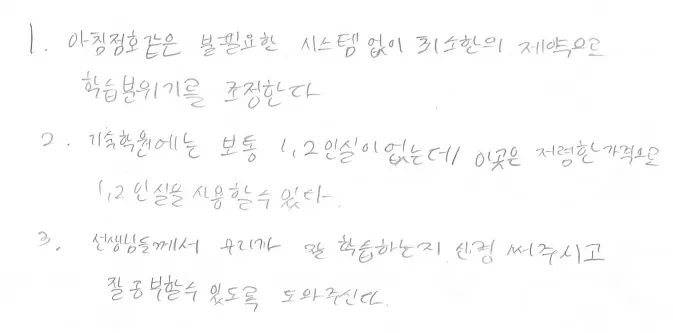 1. 아침점호같은 불필요한 시스템없이 최소한의 제약으로
학습분위기를 조정한다
2. 기숙학원에는 보통 1,2인실이 없는데 이곳은 저렴한가격으로
1,2인실을 사용할수있다.
3. 선생님들께서 우리가 잘 학습하는지 신경 써주시고
잘공부할수 있도록 도와주신다.